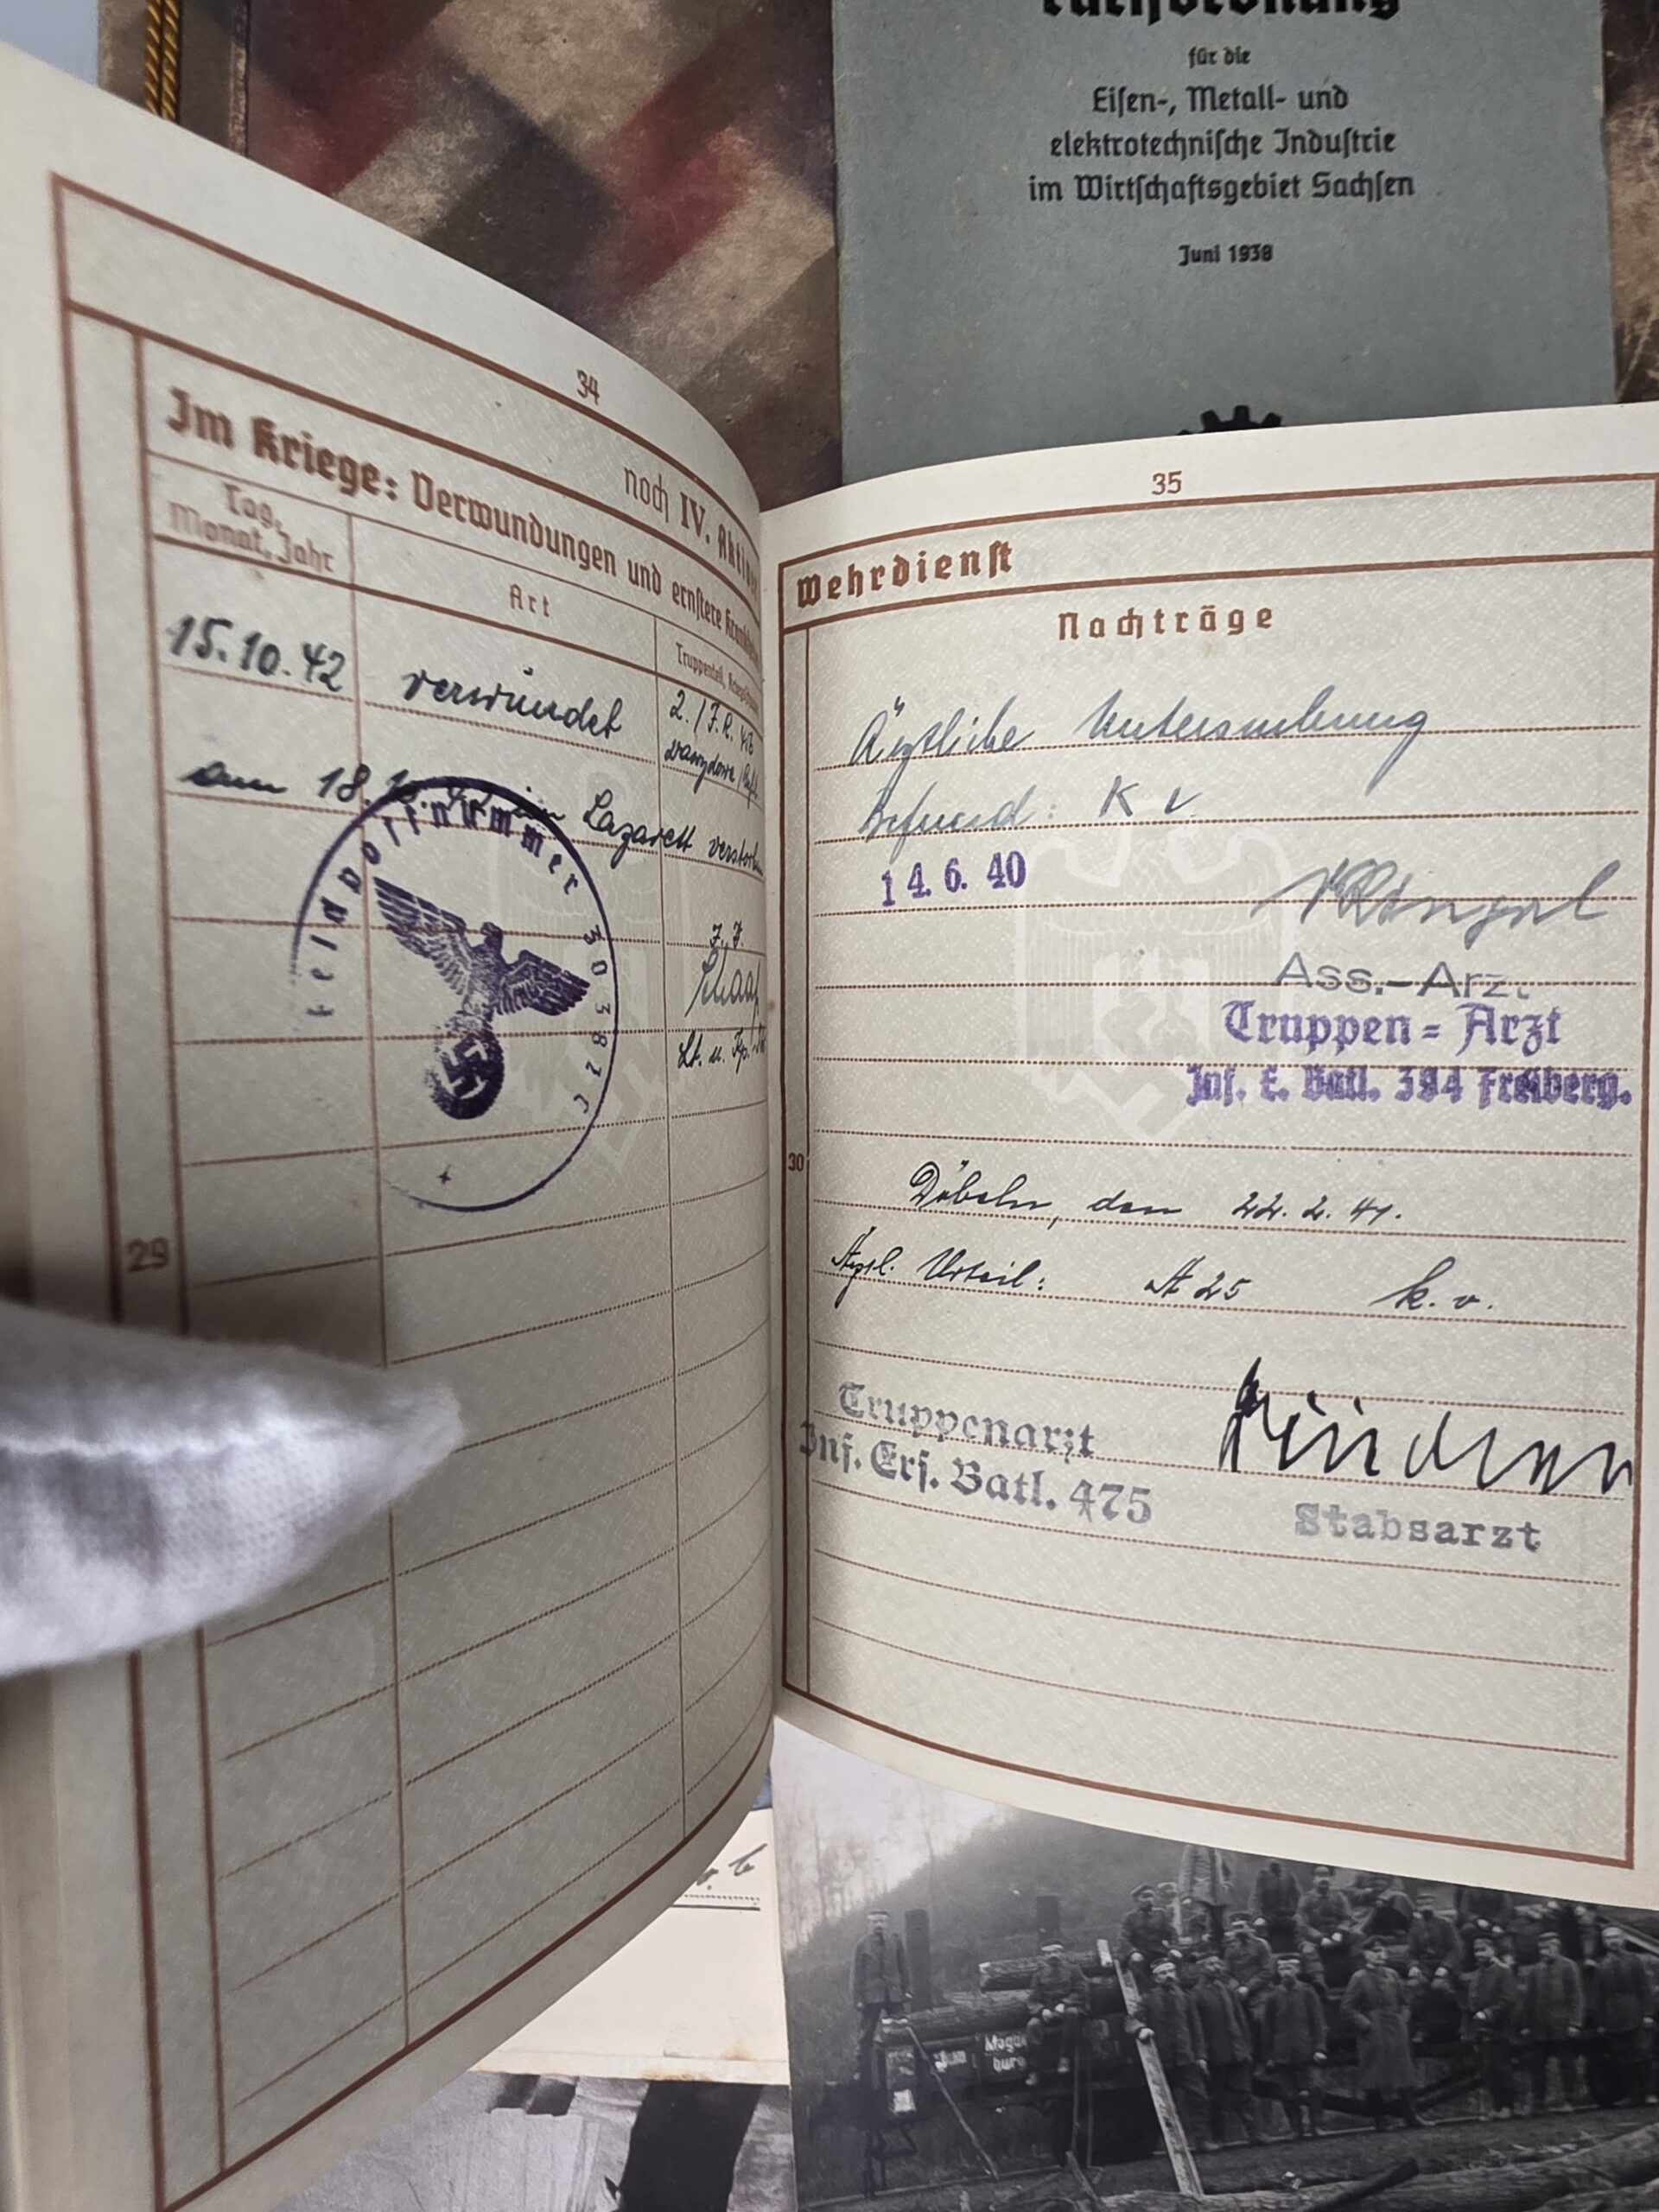 für die
Eisen-, Metall- und
elektrotechnische Industrie
im Wirtschaftsgebiet Sachsen
Juni 1938
34
noch IV.
Im Kriege: Verwundungen und ernstere
Tag, Monat, Jahr
Art
Truppenteil,
15.10.42 verwundet 2./J.R.
am 18. Lazarett
Feldpostnummer 30382
Lt. u.
29
35
Wehrdienst
Nachträge
Ärztliche Untersuchung
Befund: K v.
14. 6. 40
Ass.-Arzt
Truppen = Arzt
Inf. E. Batl. 394 Freiberg.
30
Döbeln, den 22. 2. 41.
Urteil: A 25 k. v.
Truppenarzt
Inf. Ers. Batl. 475
Stabsarzt